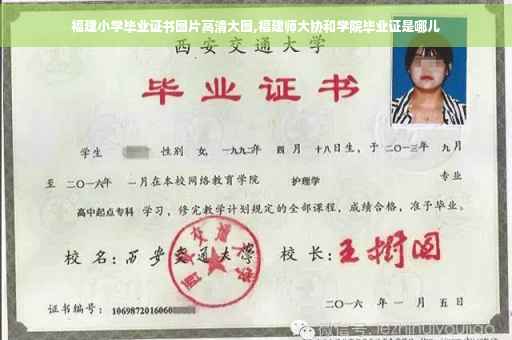 福建小学毕业证书图片高清大图,福建师大协和学院毕业证是哪儿
西安交通大学
毕业证书
学生 性别 女, 一九九二年 四月 十八日生, 于二〇一三年 九月
至 二〇一六年 一月在本校网络教育学院 护理学 专业
高中起点专科 学习, 修完教学计划规定的全部课程, 成绩合格, 准予毕业。
校名: 西安交通大学 校长: 王树国
西安交通大学
证书编号: 1069872016060
二〇一六年一月五日
微信号: jezhihuiyoujiao